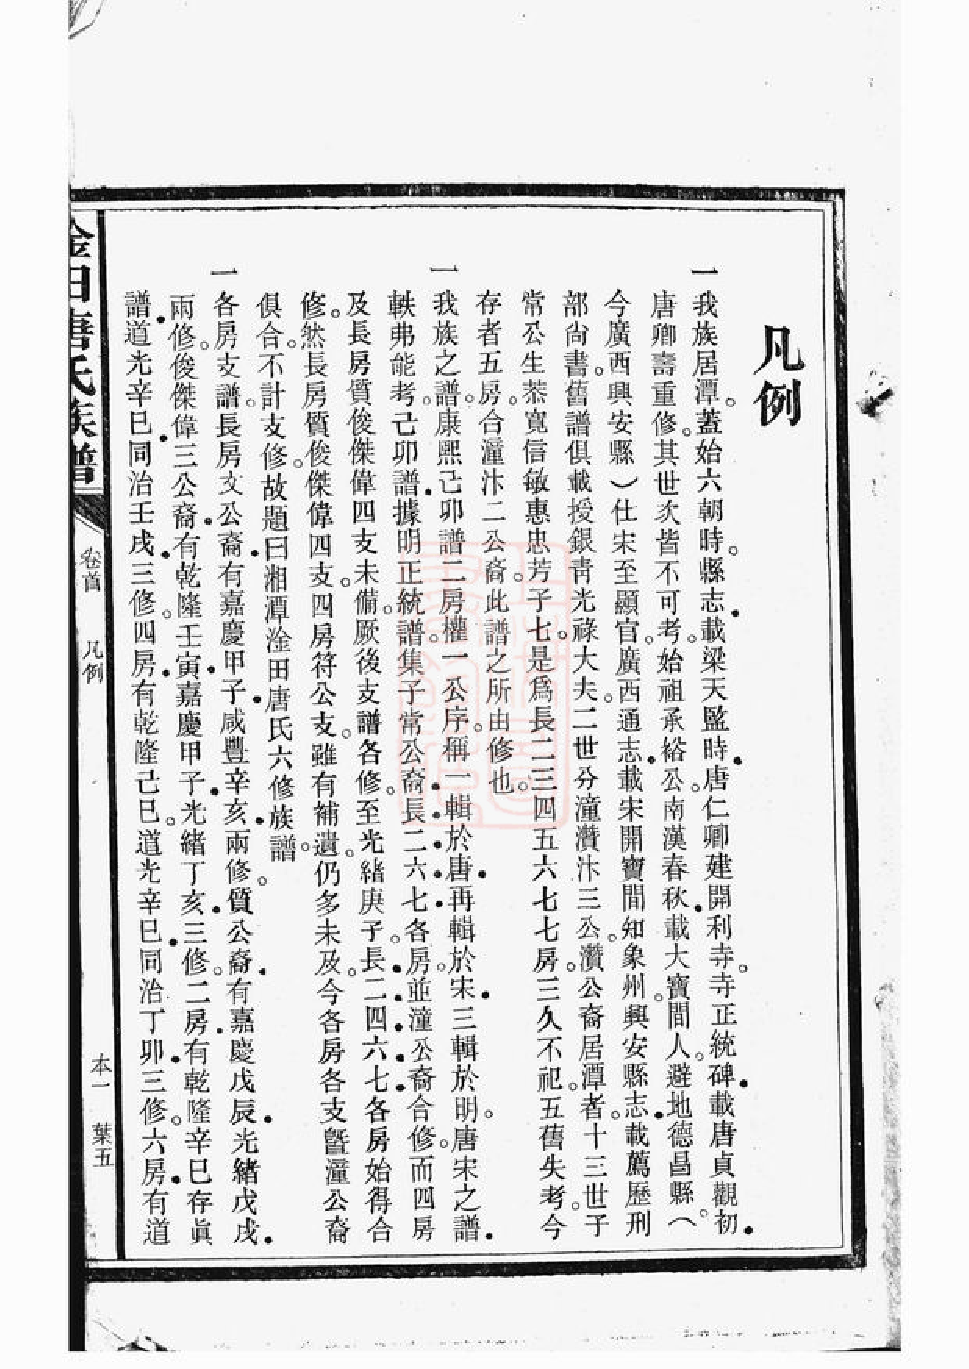 凡例
一我族居潭。蓋始六朝時。縣志載梁天監時。唐仁卿建開利寺。寺正統碑。載唐貞觀初。
唐卿壽重修。其世次皆不可考。始祖承綌公。南漢春秋。載大寶間人。避地德昌縣。（
今廣西興安縣）仕宋至顯官。廣西通志。載宋開寶間。知象州。興安縣志。載薦歷刑
部尚書。舊譜俱載授銀靑光祿大夫。二世分潼灒汴三公。灒公裔居潭者。十三世子
常公生恭寬信敏惠忠芳子七。是爲長二三四五六七七房。三久不祀。五舊失考。今
存者五房。合潼汴二公裔。此譜之所由修也。
一我族之譜。康熙己卯譜二房權一公序。稱一輯於唐。再輯於宋。三輯於明。唐宋之譜。
軼弗能考。己卯譜據明正統譜。集子常公裔。長二六七各房。並潼公裔合修。而四房
及長房質俊傑偉四支未備。厥後支譜各修。至光緖庚子。長二四六七各房始得合
修。然長房質俊傑偉四支。四房符公支。雖有補遺。仍多未及。今各房各支曁潼公裔
俱合。不計支修。故題曰湘潭淦田唐氏六修族譜。
一各房支譜。長房文公裔。有嘉慶甲子。咸豐辛亥。兩修。質公裔。有嘉慶戊辰。光緖戊戌。
兩修。俊傑偉三公裔。有乾隆壬寅。嘉慶甲子。光緖丁亥。三修。二房。有乾隆辛巳存眞
譜。道光辛巳。同治壬戌。三修。四房。有乾隆己巳。道光辛巳。同治丁卯。三修。六房。有道
唐氏族譜
卷首
凡例
本一
葉五